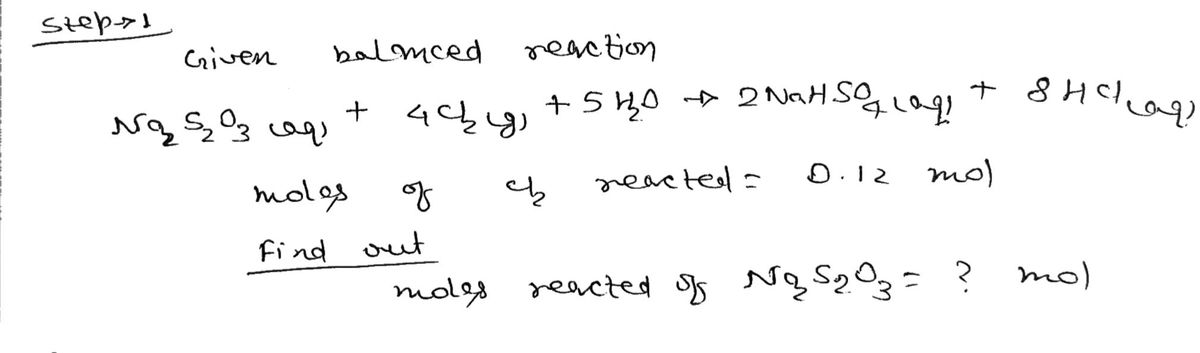 Step→1
Given balanced reaction
Na₂S₂O₃ (aq) + 4Cl₂ (g) + 5H₂O → 2NaHSO₄ (aq) + 8HCl (aq)
moles of Cl₂ reacted = 0.12 mol
Find out
moles reacted of Na₂S₂O₃ = ? mol